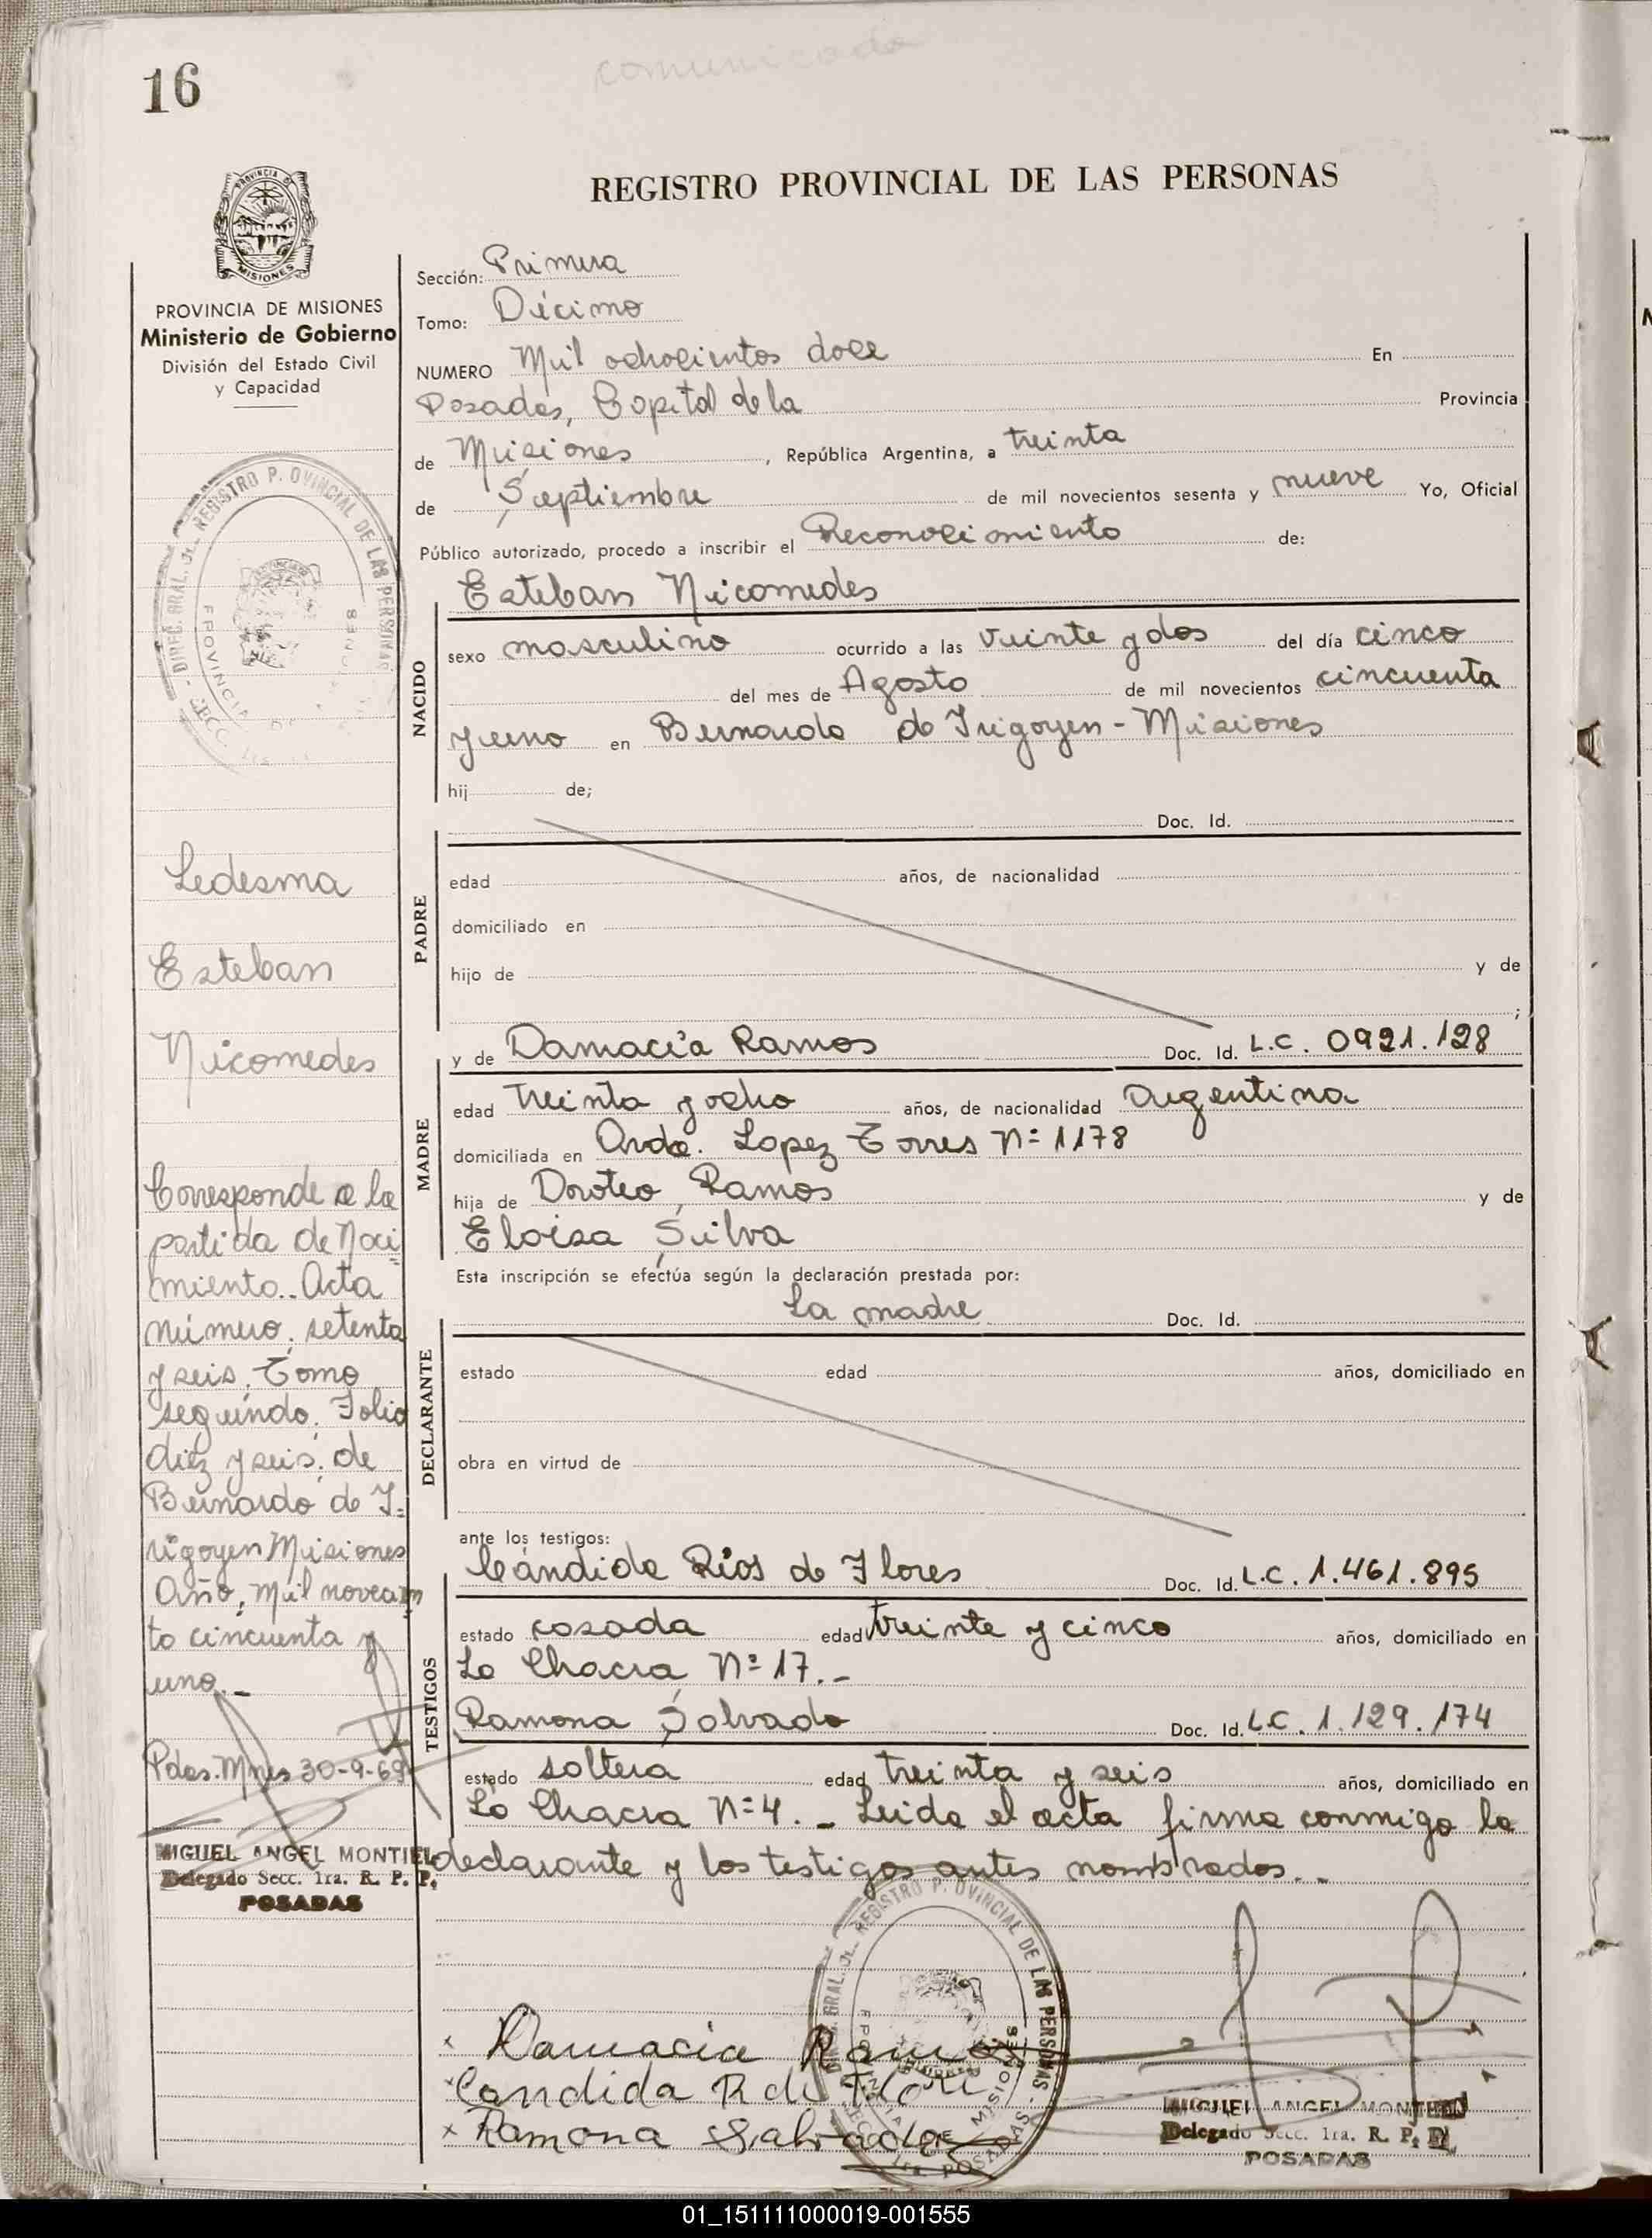 comunicado
16
REGISTRO PROVINCIAL DE LAS PERSONAS
PROVINCIA DE
MISIONES
PROVINCIA DE MISIONES
Ministerio de Gobierno
División del Estado Civil
y Capacidad
DIREC. GRAL. REGISTRO P. OVINCIAL DE LAS PERSONAS
PROVINCIA DE
Ledesma
Esteban
Nicomedes
Corresponde a la
partida de Naci
miento. Acta
número, setenta
y seis, Tomo
segundo, Folio
diez y seis, de
Bernardo de I-
rigoyen Misiones
Año, Mil novecien
to cincuenta y
uno.-
Pdas. Mnes 30-9-69
MIGUEL ANGEL MONTIEL
Delegado Secc. 1ra. R. P. P.
POSADAS
Sección: Primera
Tomo: Décimo
NUMERO Mil ochocientos doce En
Posadas, Capital de la Provincia
de Misiones, República Argentina, a treinta
de Septiembre de mil novecientos sesenta y nueve Yo, Oficial
Público autorizado, procedo a inscribir el Reconocimiento de:
Esteban Nicomedes
NACIDO
sexo masculino ocurrido a las veinte y dos del día cinco
del mes de Agosto de mil novecientos cincuenta
y uno en Bernardo de Irigoyen - Misiones
hij de;
Doc. Id.
PADRE
edad años, de nacionalidad
domiciliado en
hijo de y de
;
y de Damacia Ramos Doc. Id. L.C. 0921.128
MADRE
edad treinta y ocho años, de nacionalidad Argentina
domiciliada en Avda. Lopez Torres Nº 1178
hija de Doroteo Ramos y de
Eloisa Silva
Esta inscripción se efectúa según la declaración prestada por:
La madre Doc. Id.
DECLARANTE
estado edad años, domiciliado en
obra en virtud de
ante los testigos:
Cándida Rios de Flores Doc. Id. L.C. 1.461.895
TESTIGOS
estado casada edad treinta y cinco años, domiciliado en
La Chacra Nº 17.-
Ramona Salvado Doc. Id. L.C. 1.129.174
estado soltera edad treinta y seis años, domiciliado en
La Chacra Nº 4.- Leida el acta firma conmigo la
declarante y los testigos antes nombrados.-
Damacia Ramos
Candida R de Flore
Ramona Salvado
REGISTRO P. OVINCIAL DE LAS PERSONAS
MISIONES
1ra. POSADAS
MIGUEL ANGEL MONTIEL
Delegado Secc. 1ra. R. P. P.
POSADAS
01_151111000019-001555